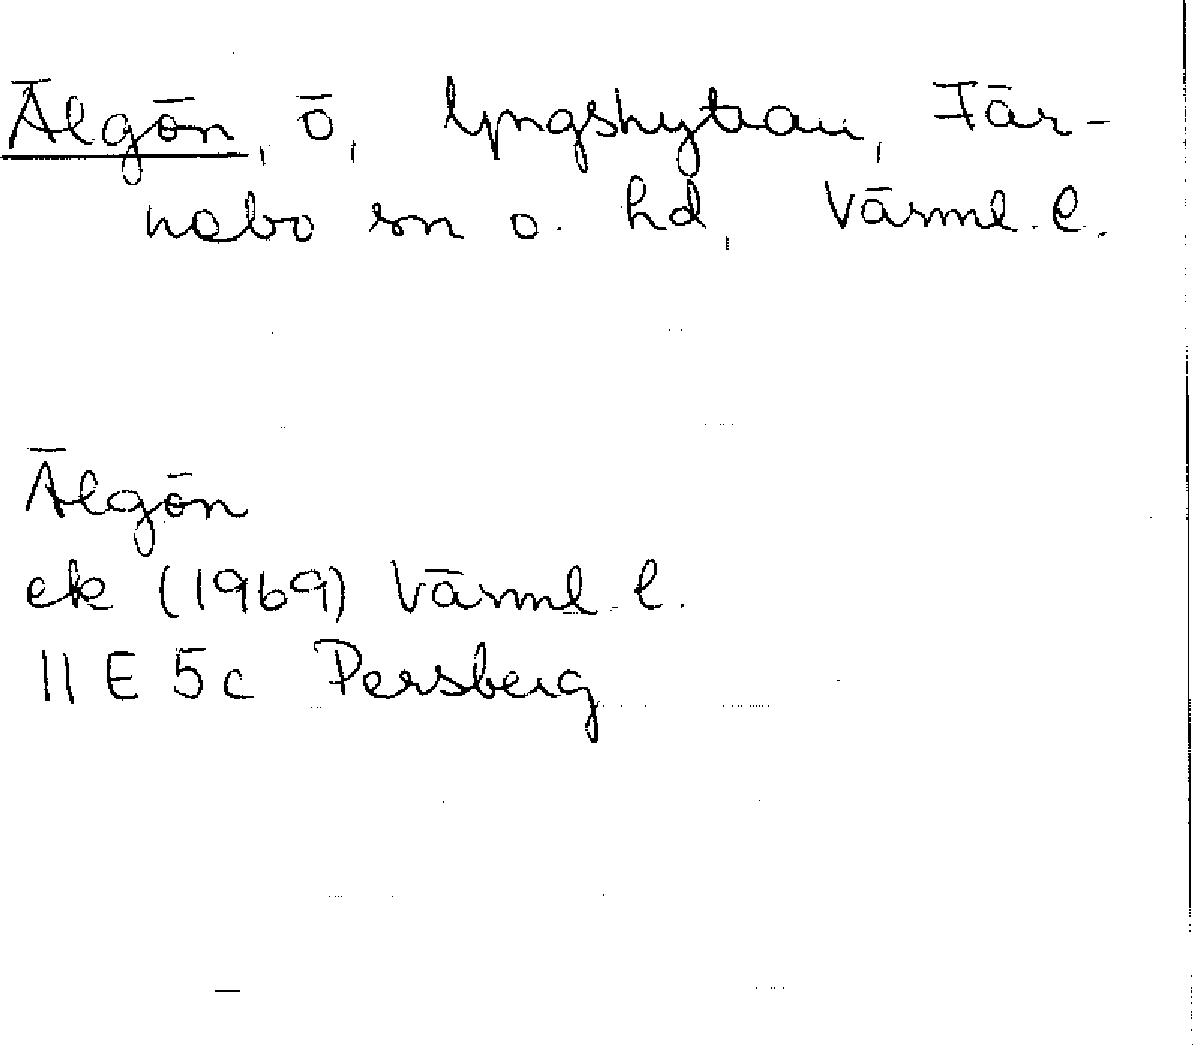 Älgön, ö, Yngshyttan, Fär-
nebo sn o. hd, Värml. l.
Älgön
ek (1969) Värml. l.
11 E 5c Persberg